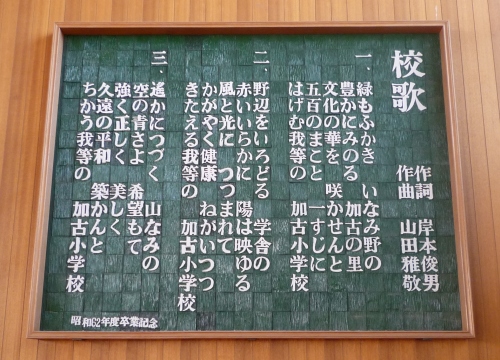 校歌
作詞 岸本俊男
作曲 山田雅敬
一、緑もふかき いなみ野の
豊かにみのる 加古の里
文化の華を 咲かせんと
五百のまこと 一すじに
はげむ我等の 加古小学校
二、野辺をいろどる 学舎の
赤いいらかに 陽は映ゆる
風と光に つつまれて
かがやく健康 ねがいつつ
きたえる我等の 加古小学校
三、遙かにつづく 山なみの
空の青さよ 希望もて
強く正しく 美しく
久遠の平和 築かんと
ちかう我等の 加古小学校
昭和62年度卒業記念